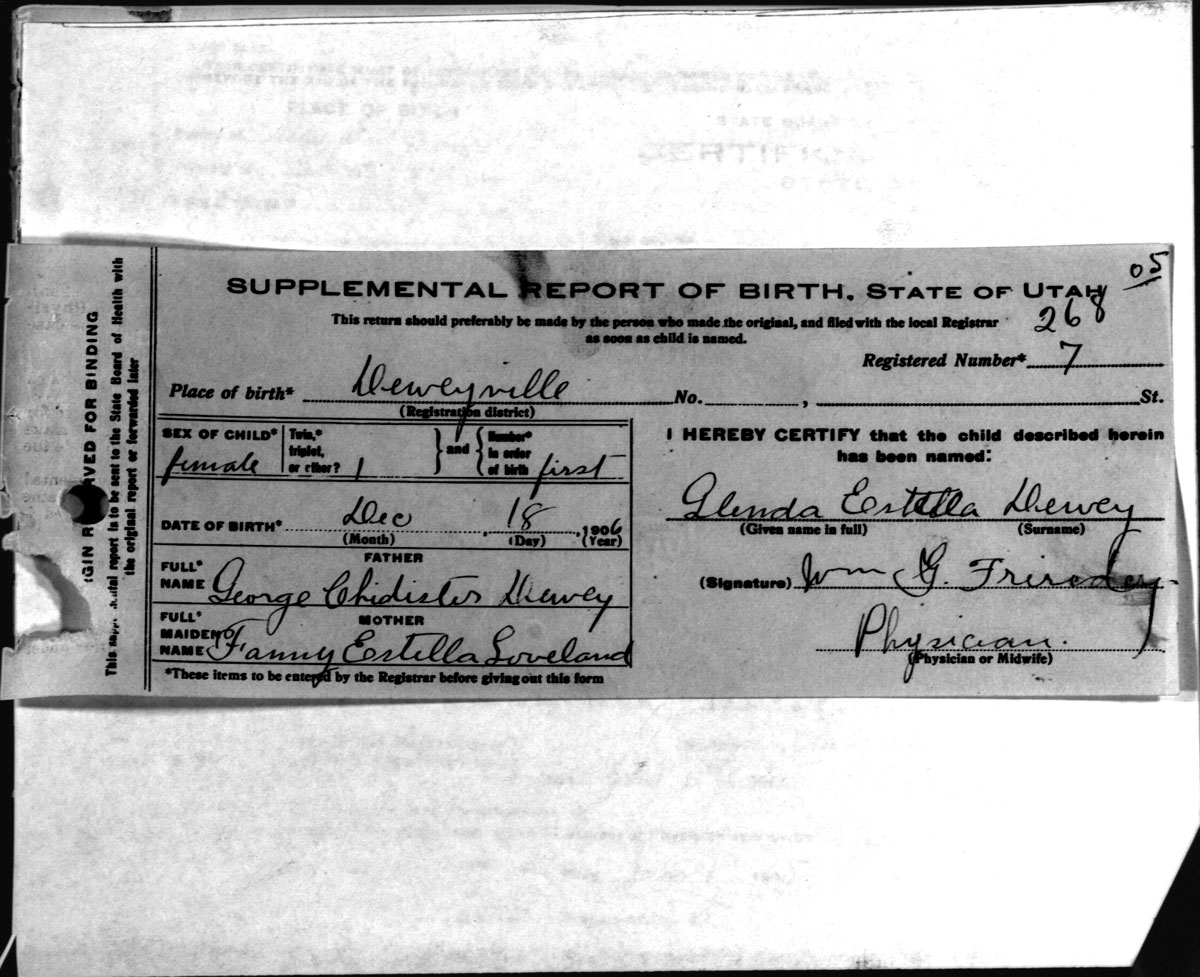 05
SUPPLEMENTAL REPORT OF BIRTH. STATE OF UTAH
This return should preferably be made by the person who made the original, and filed with the local Registrar
as soon as child is named.
268
Registered Number* 7
Place of birth* Deweyville No. , St.
(Registration district)
SEX OF CHILD* female
Twin,* triplet, or other? 1
and
Number* in order of birth first
DATE OF BIRTH* Dec 18, 1906
(Month) (Day) (Year)
FATHER
FULL* NAME George Chidister Dewey
MOTHER
FULL* MAIDEN NAME Fanny Estella Loveland
*These items to be entered by the Registrar before giving out this form
I HEREBY CERTIFY that the child described herein
has been named:
Glenda Estella Dewey
(Given name in full) (Surname)
(Signature) Wm G.
Physician.
(Physician or Midwife)
FOR BINDING
report is to be sent to the State Board of Health with
the original report or forwarded later